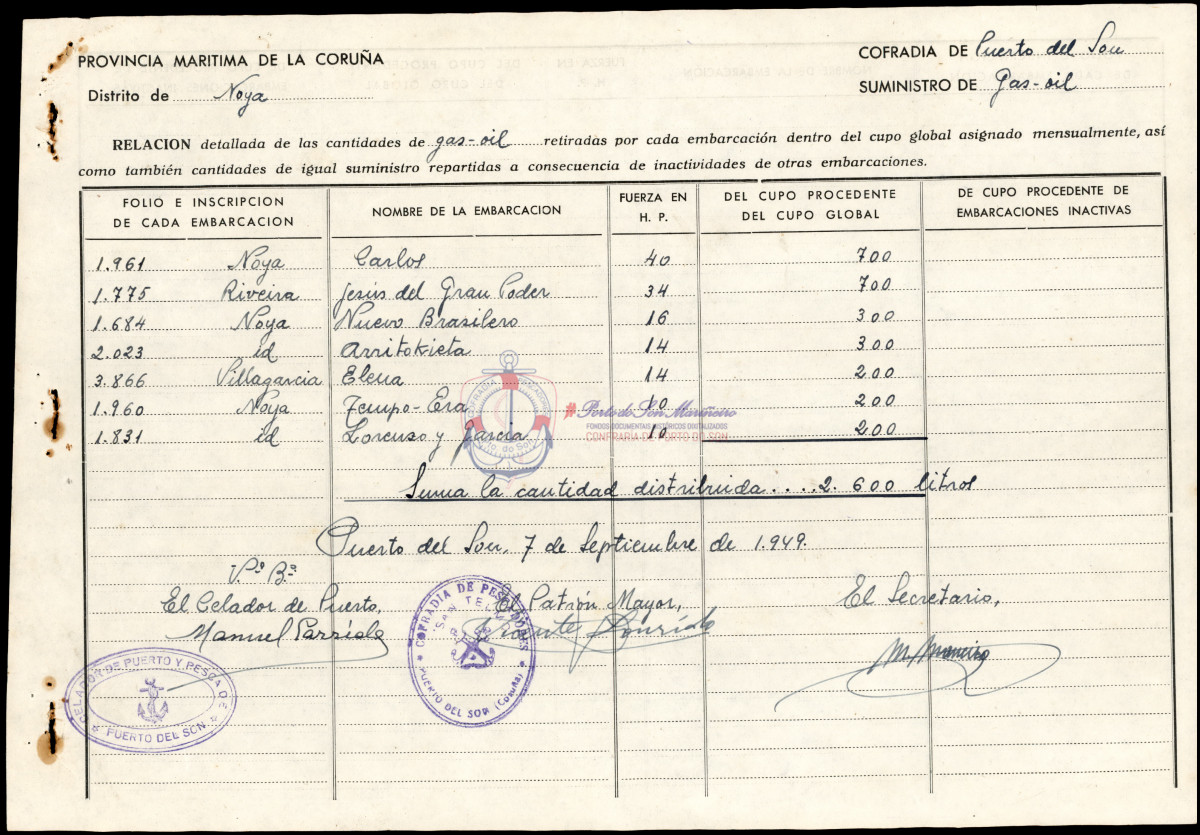 PROVINCIA MARITIMA DE LA CORUÑA
COFRADIA DE Puerto del Son
Distrito de Noya
SUMINISTRO DE Gas-oil
RELACION detallada de las cantidades de gas-oil retiradas por cada embarcación dentro del cupo global asignado mensualmente, así
como también cantidades de igual suministro repartidas a consecuencia de inactividades de otras embarcaciones.
FOLIO E INSCRIPCION DE CADA EMBARCACION
NOMBRE DE LA EMBARCACION
FUERZA EN H. P.
DEL CUPO PROCEDENTE DEL CUPO GLOBAL
DE CUPO PROCEDENTE DE EMBARCACIONES INACTIVAS
1.961 Noya Carlos 40 700
1.775 Riveira Jesús del Gran Poder 34 700
1.684 Noya Nuevo Brasilero 16 300
2.023 id Arritokieta 14 300
3.866 Villagarcia Elena 14 200
1.960 Noya Tempo-Era 10 200
1.831 id Lorenzo y Garcia 10 200
COFRADIA PESCADORES
Pto. do Son
#Porto do Son Mariñeiro
FONDOS DOCUMENTAIS HISTÓRICOS DIXITALIZADOS
CONFRARÍA DE PORTO DO SON
Suma la cantidad distribuida.... 2.600 litros
Puerto del Son, 7 de Septiembre de 1.949.
Vº Bº
El Celador de Puerto,
El Patrón Mayor,
El Secretario,
Manuel
CELADOR DE PUERTO Y PESCA DE
PUERTO DEL SON
COFRADIA DE PESCADORES
"SAN TELMO"
PUERTO DEL SON (Coruña)